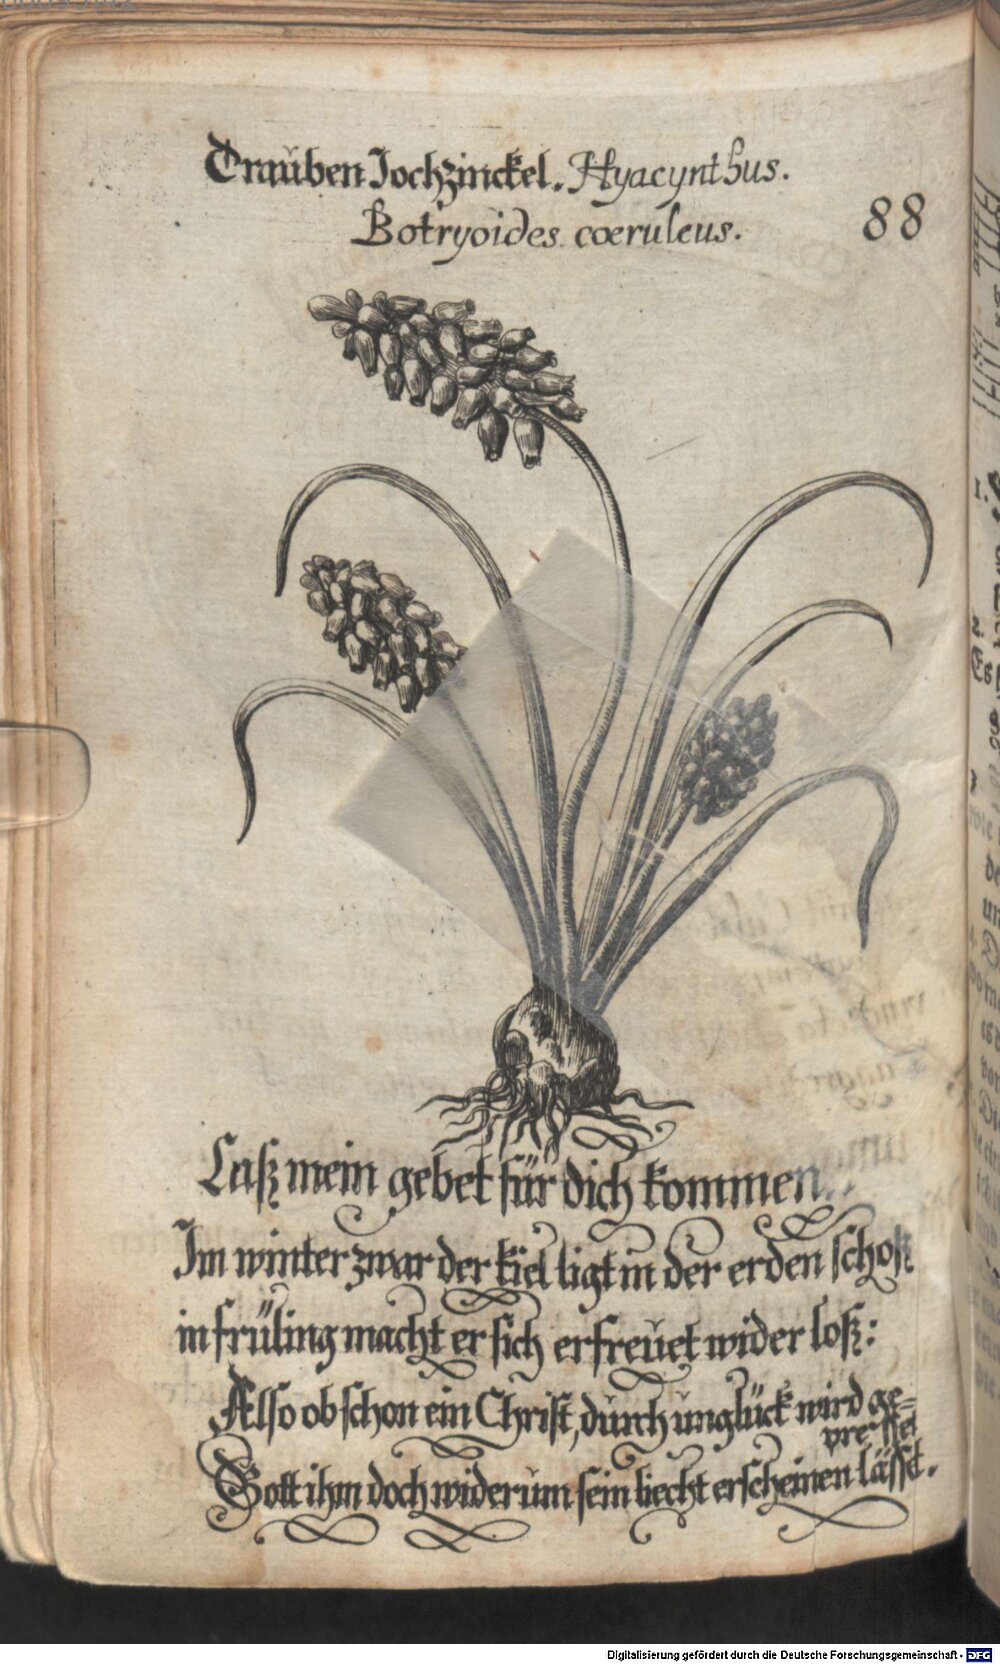 Trauben Jochzinckel. Hyacynthus.
Botryoides coeruleus.
88
Laß mein gebet für dich kommen
Im winter zwar der kiel ligt in der erden schoß
in früling macht er sich erfreuet wider loß:
Also ob schon ein Christ, durch unglück wird ge-
presset
Gott ihm doch widerum sein liecht erscheinen lässt.
Digitalisierung gefördert durch die Deutsche Forschungsgemeinschaft - DFG